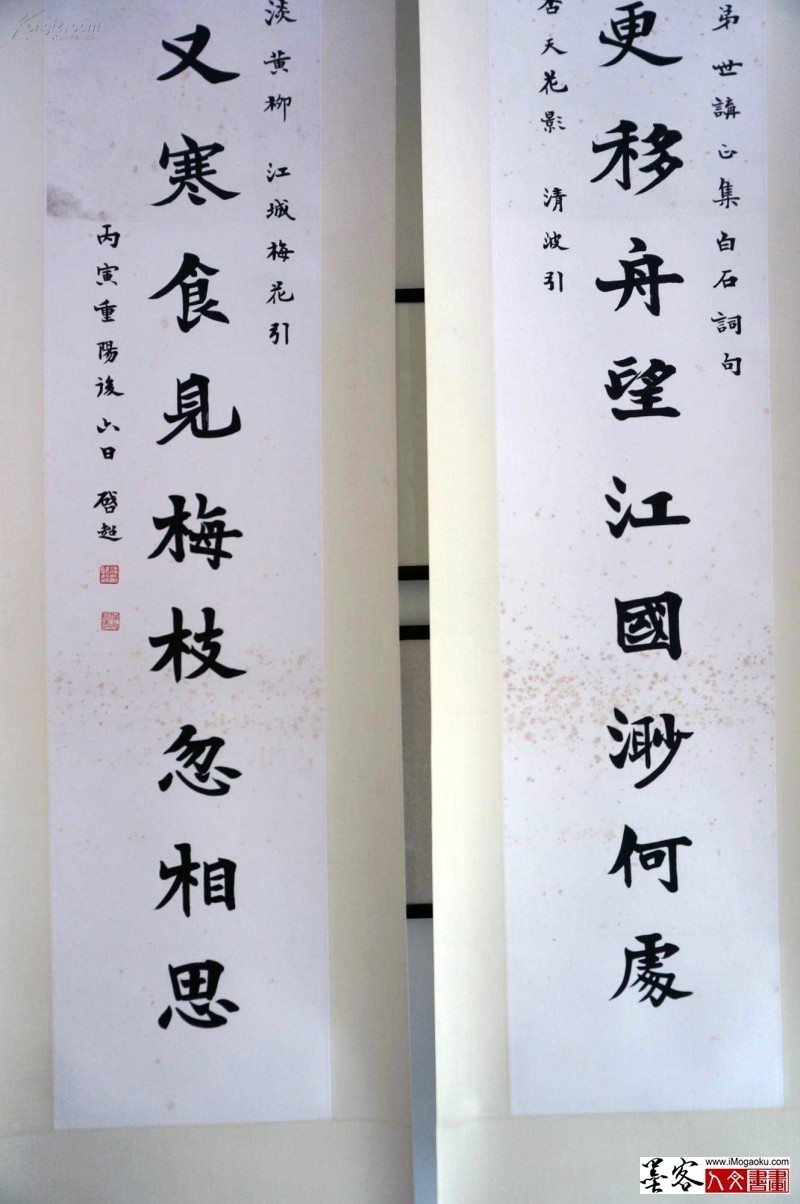 弟世講正集白石詞句
更移舟望江國渺何處
杏天花影 清波引
淡黃柳 江城梅花引
又寒食見梅枝忽相思
丙寅重陽後六日 啓超
www.iMogaoku.com
墨客
人文書畫